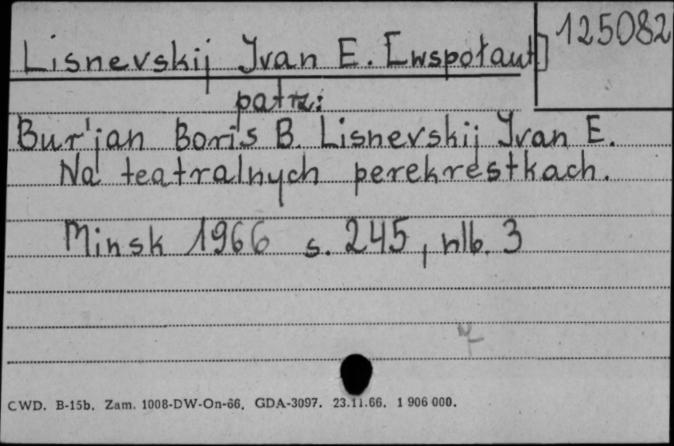 125082
Lisnevskij Ivan E. [współaut]
patrz:
Bur'jan Boris B. Lisnevskij Ivan E.
Na teatralnych perekrestkach.
Minsk 1966 s. 245, nlb. 3
CWD. B-15b. Zam. 1008-DW-On-66. GDA-3097. 23.11.66. 1 906 000.